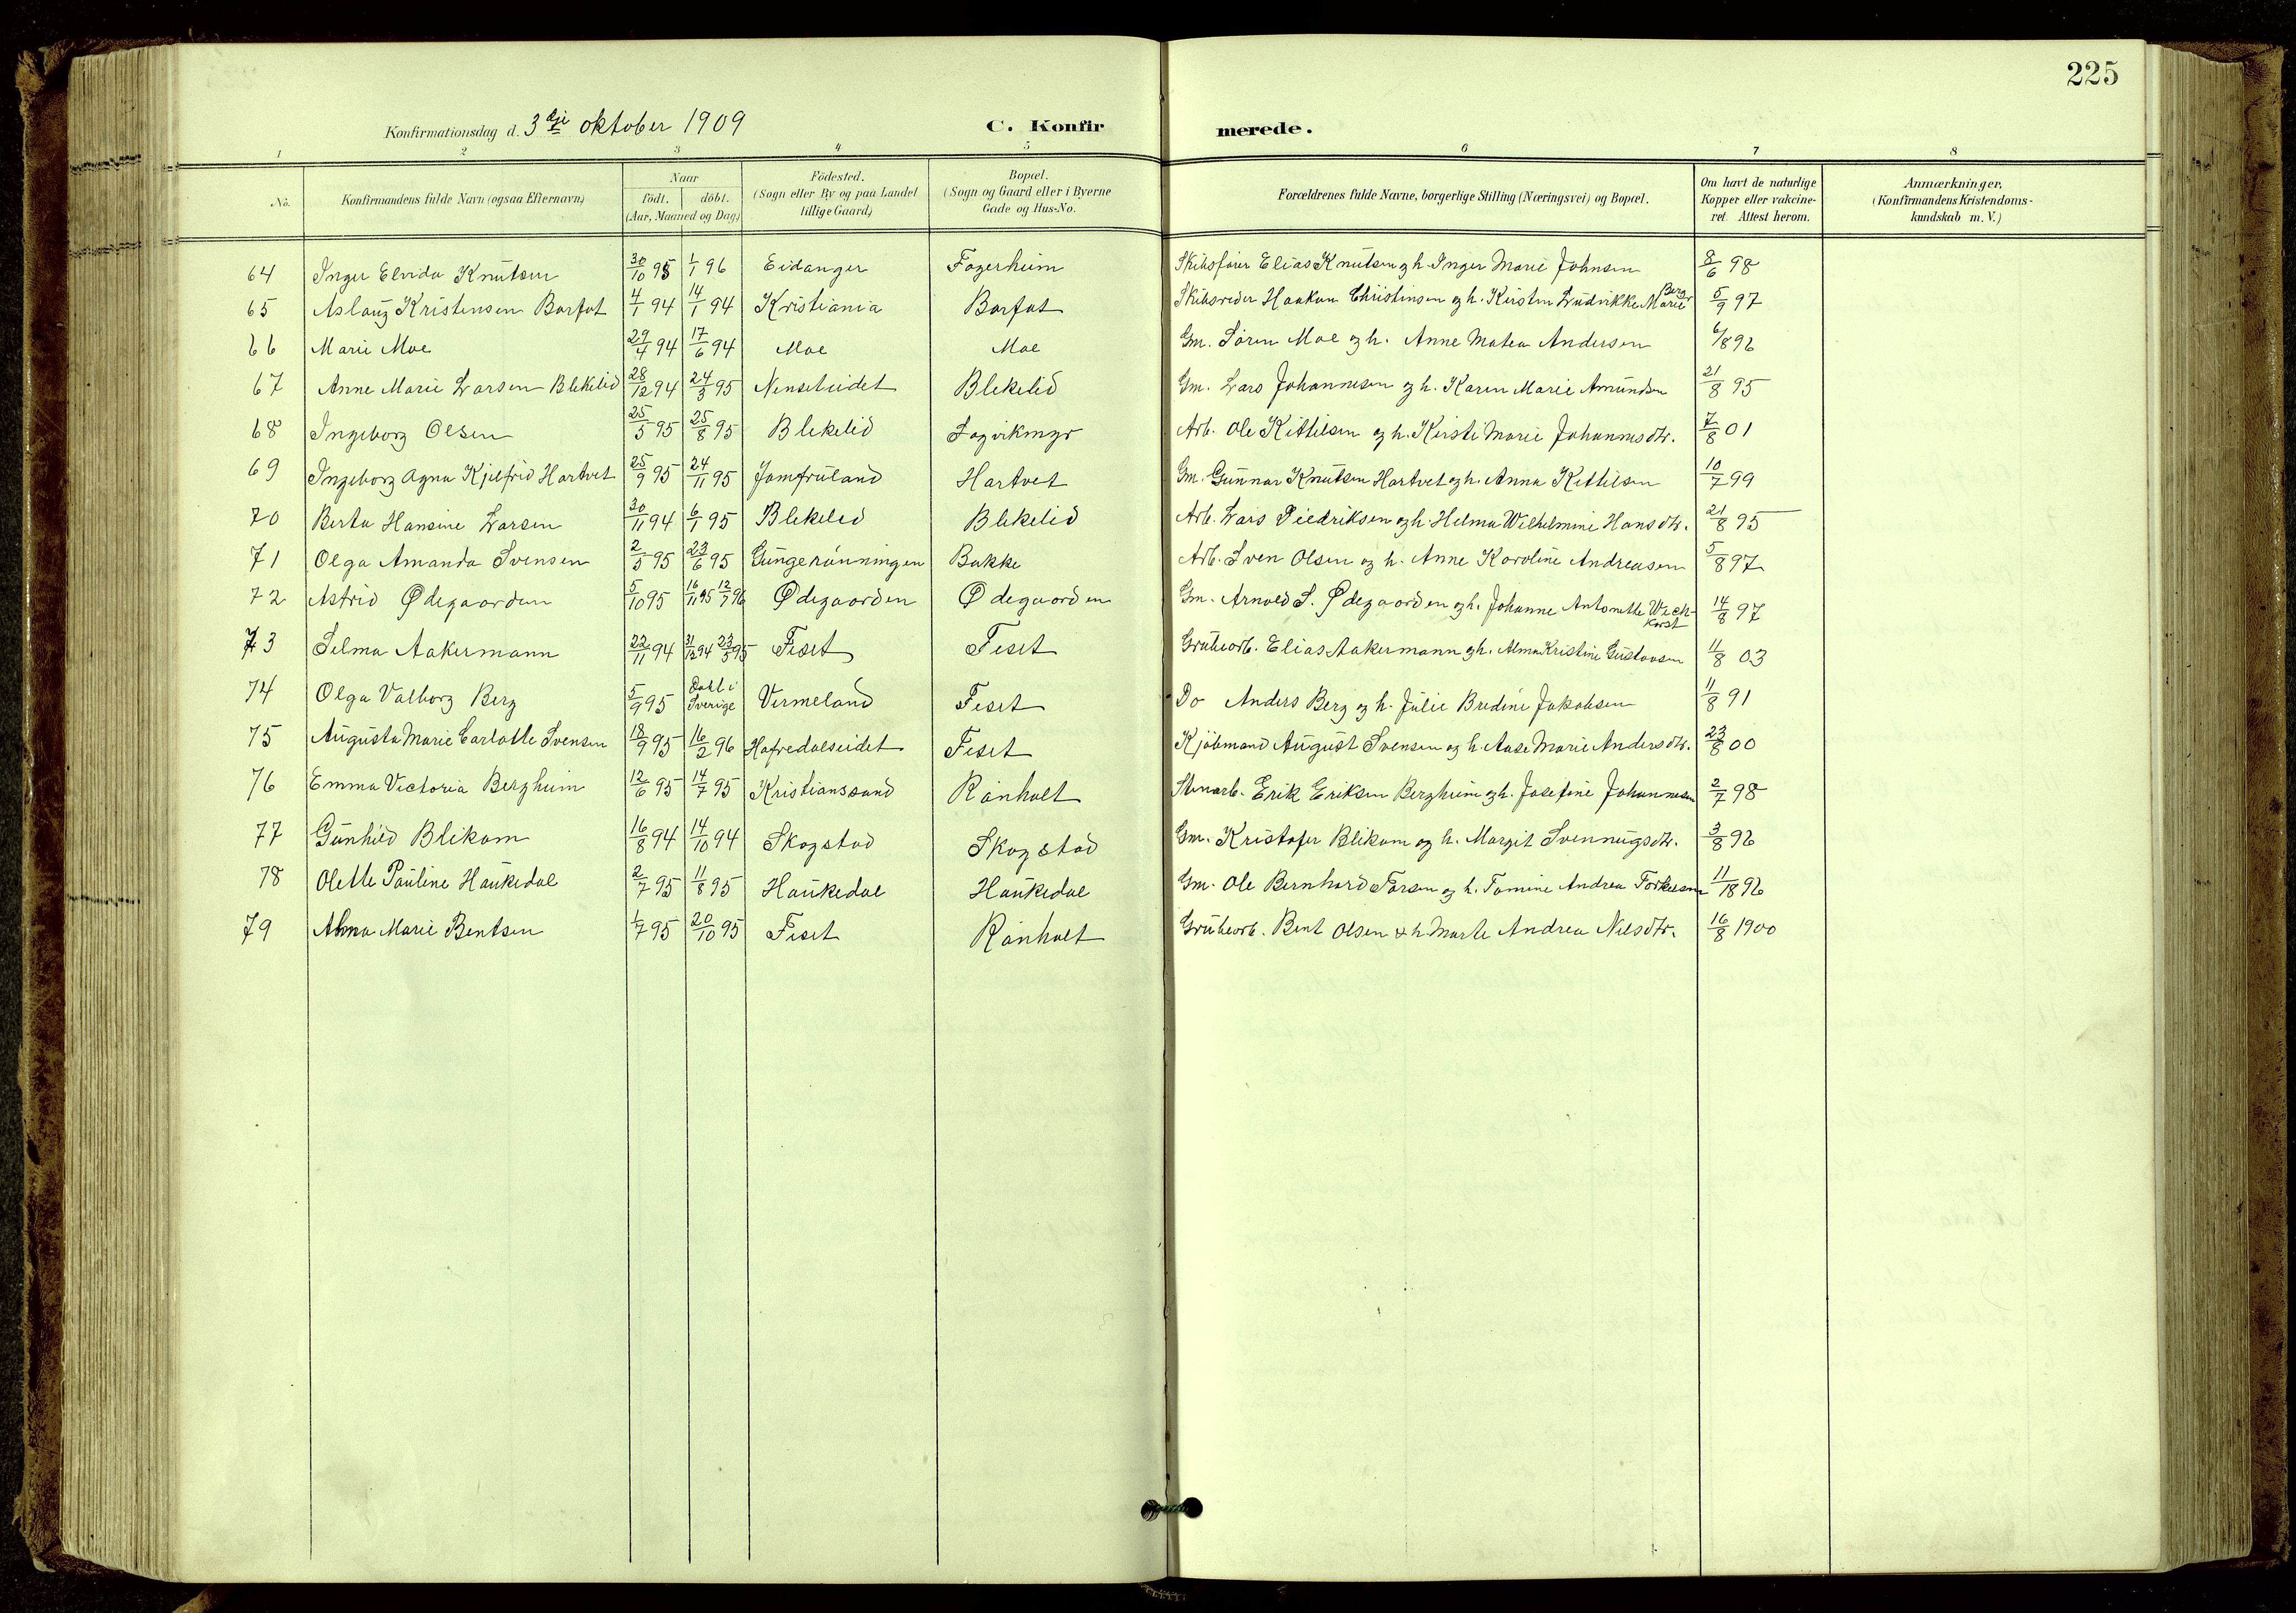 225
Konfirmationsdag d. 3dje oktober 1909 C. Konfirmerede.
1 2 3 4 5 6 7 8
No. Konfirmandens fulde Navn (ogsaa Efternavn) Naar födt. döbt. (Aar, Maaned og Dag) Födested. (Sogn eller By og paa Landet tillige Gaard) Bopæl. (Sogn og Gaard eller i Byerne Gade og Hus-No. Forældrenes fulde Navne, borgerlige Stilling (Næringsvei) og Bopæl. Om havt de naturlige Kopper eller vakcineret. Attest herom. Anmærkninger. (Konfirmandens Kristendomskundskab m. V.)
64 Inger Elvida Knutsen 30/10 95 1/1 96 Eidanger Fagerheim Skibsfører Elias Knutsen og h. Inger Marie Johnsen 8/6 98
65 Aslaug Kristensen Barfot 4/1 94 14/1 94 Kristiania Barfot Skibsreder Haakon Christensen og h. Kirsten Ludvikke Marie Berg 5/9 97
66 Marie Moe 29/4 94 17/6 94 Moe Moe Gm. Søren Moe og h. Anne Matea Andersen 6/8 96
67 Anne Marie Larsen Blekelid 28/12 94 24/3 95 Nenseteidet Blekelid Gm. Lars Johannesen og h. Karen Marie Amundsen 21/8 95
68 Ingeborg Olsen 25/5 95 25/8 95 Blekelid Fagvikmyr Arb. Ole Kittilsen og h. Kirsti Marie Johannesdtr. 7/8 01
69 Ingeborg Agna Kjelfrid Hartvet 25/9 95 24/11 95 Jomfruland Hartvet Gm. Gunnar Knutsen Hartvet og h. Anna Kittilsen 10/7 99
70 Berta Hansine Larsen 30/11 94 6/1 95 Blekelid Blekelid Arb. Lars Diedriksen og h. Helma Wilhelmine Hansdtr. 21/8 95
71 Olga Amanda Svensen 2/5 95 23/6 95 Gungerønningen Bakke Arb. Sven Olsen og h. Anne Karoline Andreasen 5/8 97
72 Astrid Ødegaarden 5/10 95 16/11 95 12/7 96 Ødegaarden Ødegaarden Gm. Arnold S. Ødegaarden og h. Johanne Antonette Weckhorst 14/8 97
73 Selma Aakermann 22/11 94 31/12 94 23/5 95 Feset Feset Grubearb. Elias Aakermann og h. Alma Kristine Gustavsen 11/8 03
74 Olga Valborg Berg 5/9 95 Døbt i Sverige Vermeland Feset Do Anders Berg og h. Julie Bredine Jakobsen 11/8 91
75 Augusta Marie Carlotte Svensen 18/9 95 16/2 96 Hafredalseidet Feset Kjøbmand August Svensen og h. Aase Marie Andersdtr. 23/8 00
76 Emma Victoria Bergheim 12/6 95 14/7 95 Kristianssand Rønholt Stenarb. Erik Eriksen Bergheim og h. Josefine Johannesen 2/7 98
77 Gunhild Blikom 16/8 94 14/10 94 Skogstad Skogstad Gm. Kristofer Blikom og h. Margit Svennugsdtr. 3/8 96
78 Olette Pauline Haukedal 2/7 95 11/8 95 Haukedal Haukedal Gm. Ole Bernhard Larsen og h. Tomine Andrea Torkelsen 11/18 96
79 Alma Marie Bentsen 1/7 95 20/10 95 Feset Rønholt Grubearb. Bent Olsen & h Marte Andrea Nilsdtr. 16/8 1900